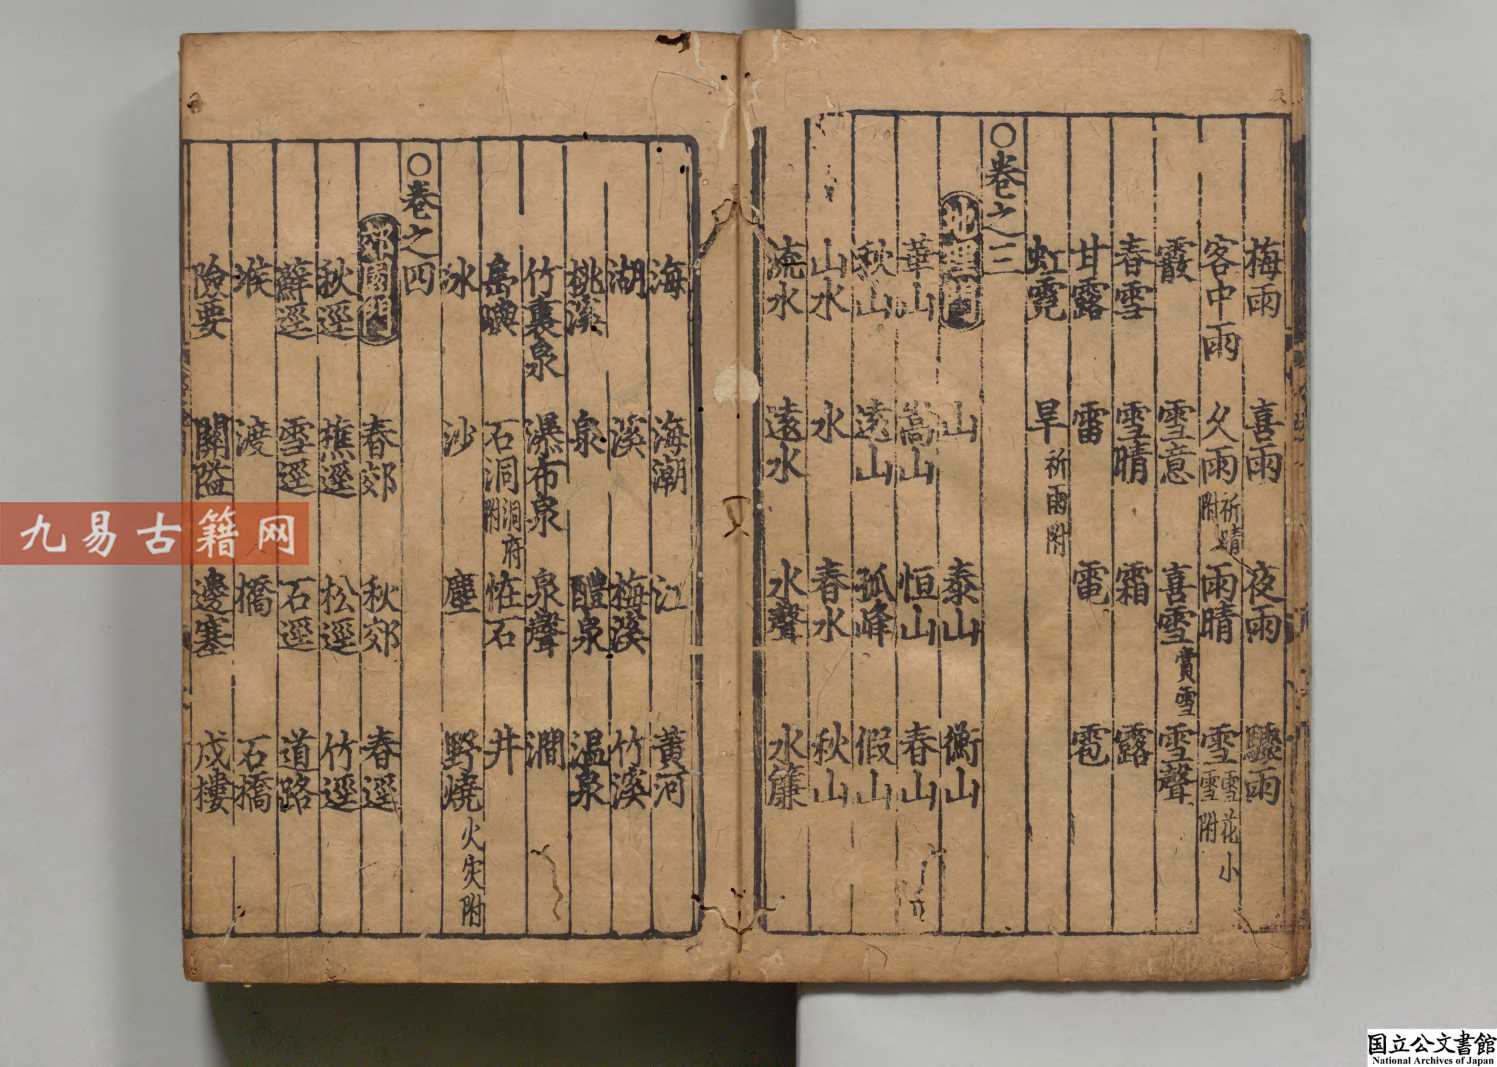 梅雨 喜雨 夜雨 驟雨
客中雨 久雨 祈晴附 雨晴 雪 雪花小雪附
霰 雪意 喜雪 賞雪 雪聲
春雪 雪晴 霜 露
甘露 雷 電 雹
虹霓 旱 祈雨附
○卷之三
地理門 山 泰山 衡山
華山 嵩山 恒山 春山
秋山 遠山 孤峰 假山
山水 水 春水 秋山
流水 遠水 水聲 水簾
海 海潮 江 黃河
湖 溪 梅溪 竹溪
桃溪 泉 醴泉 溫泉
竹裏泉 瀑布泉 泉聲 澗
島嶼 石洞 洞府附 怪石 井
冰 沙 塵 野燒 火災附
○卷之四
郊園門 春郊 秋郊 春逕
秋逕 樵逕 松逕 竹逕
蘚逕 雪逕 石逕 道路
堠 渡 橋 石橋
險要 關隘 邊塞 戍樓
九易古籍网
国立公文書館
National Archives of Japan